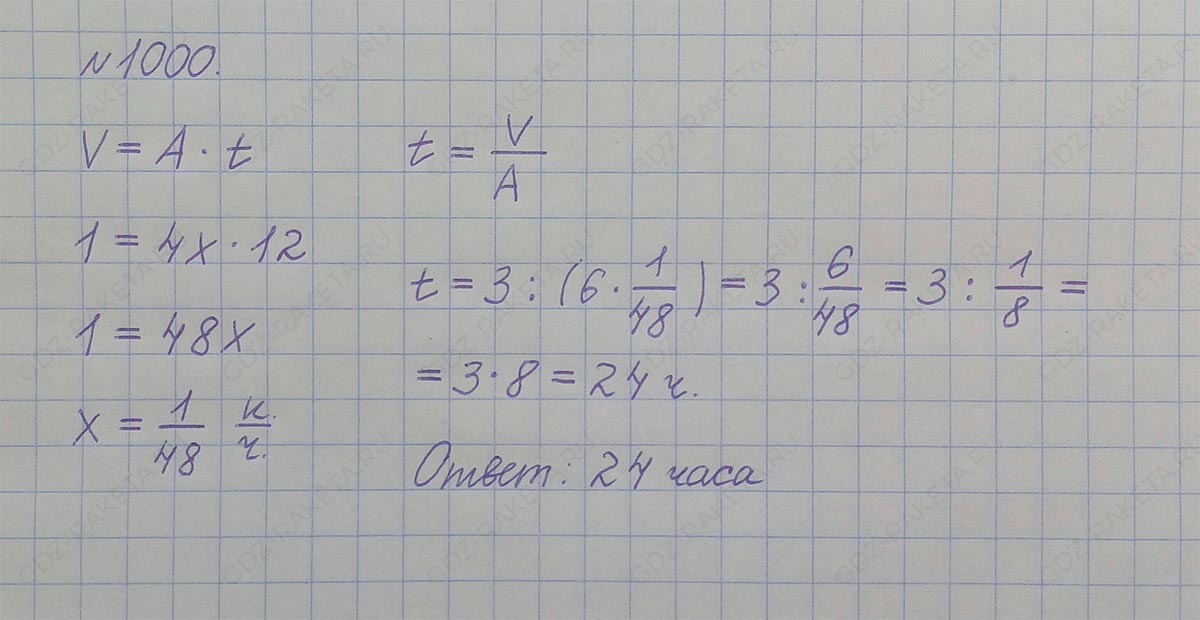 №1000.
V = A · t
1 = 4x · 12
1 = 48x
x = 1/48 к./ч.
t = V/A
t = 3 : (6 · 1/48) = 3 : 6/48 = 3 : 1/8 =
= 3 · 8 = 24 ч.
Ответ: 24 часа
GDZ-RAKETA.RU